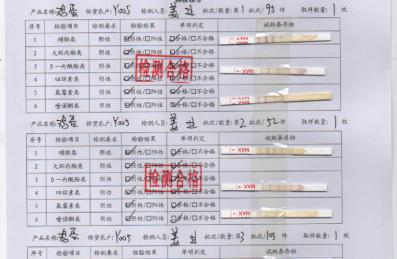 产品名称:鸡蛋 供货农户:Y005 检测人员: 批次/数量:第1批次/95件 取样数量:1枚
序号 检验项目 检测要求 检验结果 单项判定 试纸条存档
1 磺胺类 阴性 ☑阴性/□阳性 ☑合格/□不合格
2 大环内酯类 阴性 ☑阴性/□阳性 ☑合格/□不合格
3 β-内酰胺类 阴性 ☑阴性/□阳性 ☑合格/□不合格
4 四环素类 阴性 ☑阴性/□阳性 ☑合格/□不合格
5 氟霉素类 阴性 ☑阴性/□阳性 ☑合格/□不合格
6 喹诺酮类 阴性 ☑阴性/□阳性 ☑合格/□不合格
检测合格
MAX
MAX
MAX
产品名称:鸡蛋 供货农户:Y005 检测人员: 批次/数量:第2批次/52件 取样数量:1枚
序号 检验项目 检测要求 检验结果 单项判定 试纸条存档
1 磺胺类 阴性 ☑阴性/□阳性 ☑合格/□不合格
2 大环内酯类 阴性 ☑阴性/□阳性 ☑合格/□不合格
3 β-内酰胺类 阴性 ☑阴性/□阳性 ☑合格/□不合格
4 四环素类 阴性 ☑阴性/□阳性 ☑合格/□不合格
5 氟霉素类 阴性 ☑阴性/□阳性 ☑合格/□不合格
6 喹诺酮类 阴性 ☑阴性/□阳性 ☑合格/□不合格
检测合格
MAX
MAX
MAX
产品名称:鸡蛋 供货农户:Y005 检测人员: 批次/数量:第3批次/ 件 取样数量:1枚
序号 检验项目 检测要求 检验结果 单项判定 试纸条存档